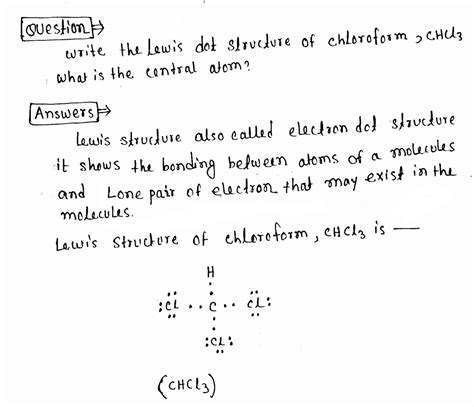 Question ⇒
write the Lewis dot structure of chloroform, CHCl3
what is the central atom?
Answers ⇒
Lewis structure also called electron dot structure
it shows the bonding between atoms of a molecules
and Lone pair of electron that may exist in the
molecules.
Lewis structure of chloroform, CHCl3 is —
H
:Cl .. C .. Cl:
:Cl:
(CHCl3)